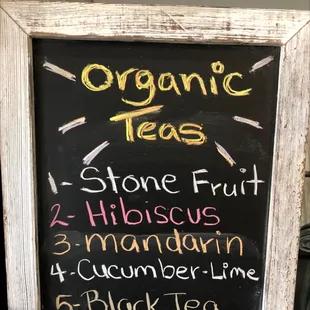 Organic
Teas
1- Stone Fruit
2- Hibiscus
3- mandarin
4- Cucumber-Lime
5- Black Tea